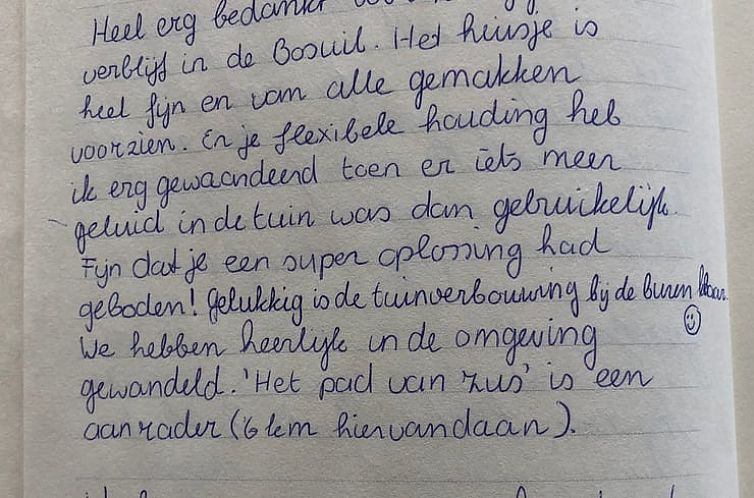 Heel erg bedankt
verblijf in de Bosuil. Het huisje is
heel fijn en van alle gemakken
voorzien. En je flexibele houding heb
ik erg gewaardeerd toen er iets meer
geluid in de tuin was dan gebruikelijk.
Fijn dat je een super oplossing had
geboden! Gelukkig is de tuinverbouwing bij de buren klaar.
We hebben heerlijk in de omgeving
gewandeld. 'Het pad van zus' is een
aanrader (6 km hiervandaan).